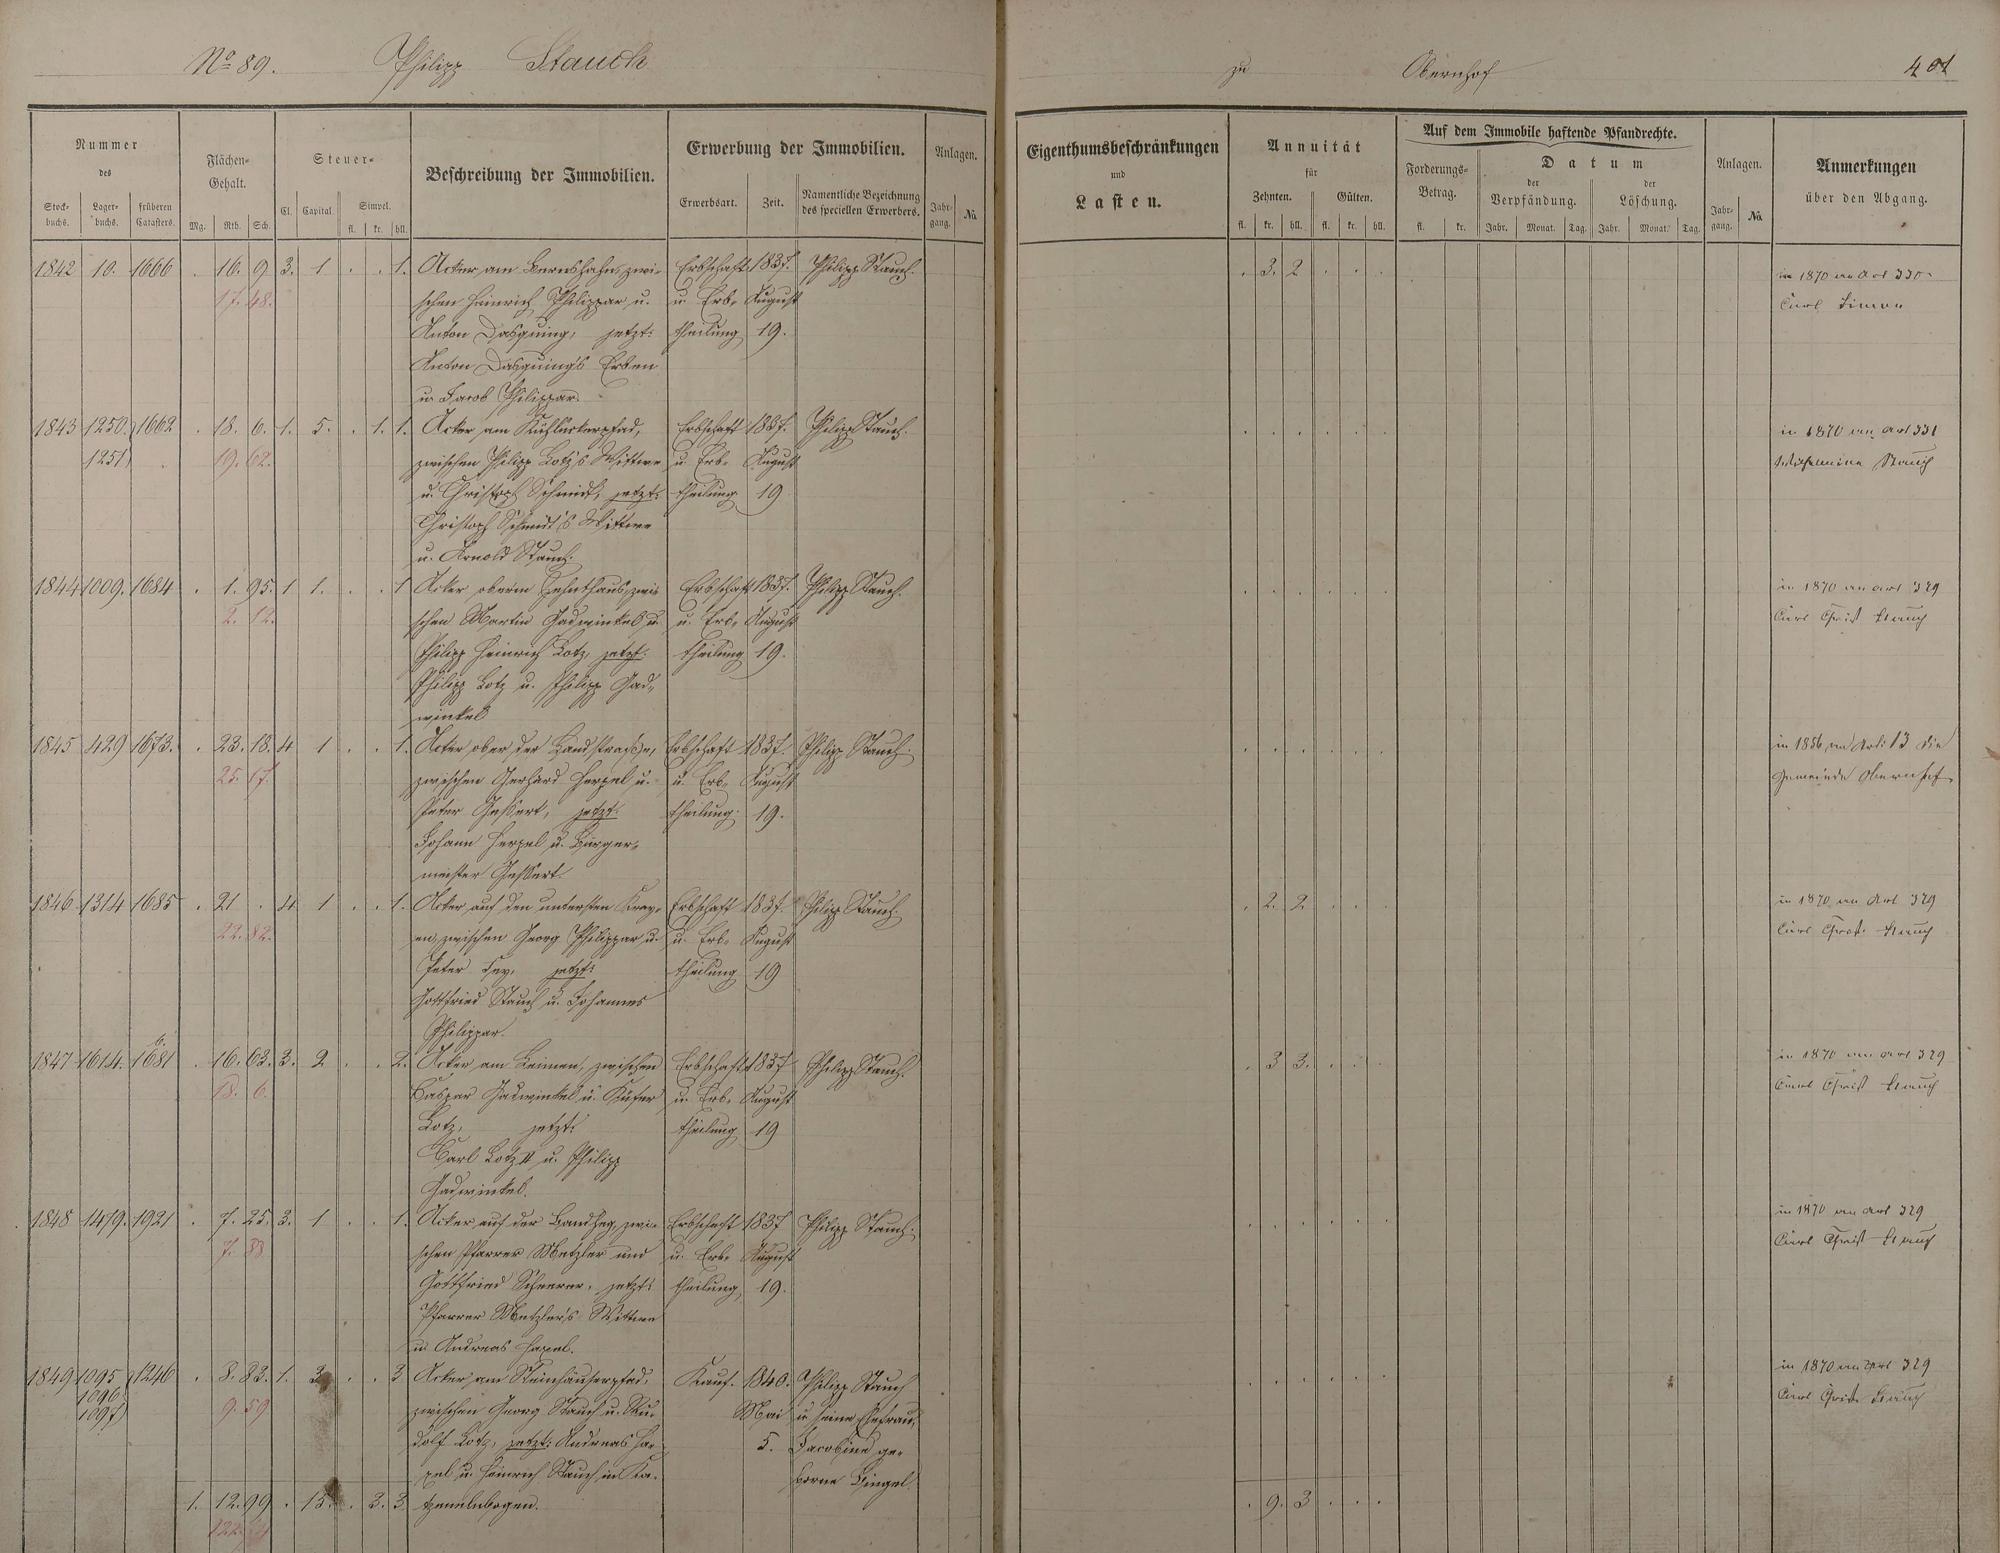 No 89. Philipp Stauch
zu Obernhof 401
Nummer
des
Stock-
buchs.
Lager-
buchs.
früheren
Catasters.
Flächen-
Gehalt.
Mg. Rth. Sch.
Steuer-
Cl. Capital. Simpel.
fl. kr. hll.
Beschreibung der Immobilien.
Erwerbung der Immobilien.
Erwerbsart. Zeit. Namentliche Bezeichnung
des speciellen Erwerbers.
Anlagen.
Jahr-
gang. No.
Eigenthumsbeschränkungen
und
Lasten.
Annuität
für
Zehnten. Gülten.
fl. kr. hll. fl. kr. hll.
Auf dem Immobile haftende Pfandrechte.
Forderungs-
Betrag.
fl. kr.
Datum
der
Verpfändung.
der
Löschung.
Jahr. Monat. Tag. Jahr. Monat. Tag.
Anlagen.
Jahr-
gang. No.
Anmerkungen
über den Abgang.
1842 10. 1666 . 16. 9 3. 1 . . 1. Acker am zwi- Erbschaft 1837. Philipp Stauch. . 3. 2 . . . in 1870 an Art 330
17. 48. schen Heinrich Philippar u. u. Erb- August Carl Simon
Anton Dasquing, jetzt: theilung 19.
Anton Dasquing's Erben
u. Jacob Philippar.
1843 1250. 1662 . 18. 6. 1. 5. . 1. 1. Acker am Erbschaft 1837. Philipp Stauch. in 1870 an Art 331
1251 19. 62. zwischen Philipp Lotz's Wittwe u. Erb- August Wilhelmine Stauch
u. Christoph Schmidt, jetzt: theilung 19
Christoph Schmidt's Wittwe
u. Arnold Stauch.
1844 1009. 1684 . 1. 95. 1 1. . . 1 Acker oberm Zehnthaus, zwi- Erbschaft 1837. Philipp Stauch. in 1870 an Art 329
2. 12. schen Martin Gadwinkel u. u. Erb- August Carl Christ Stauch
Philipp Heinrich Lotz, jetzt: theilung 19.
Philipp Lotz u. Philipp Gad-
winkel
1845 429 1673. . 23. 18. 4 1 . . 1. Acker ober der Landstraße, Erbschaft 1837. Philipp Stauch. in 1856 an Art: 13 die
25. 17. zwischen Gerhard Herpel u. u. Erb- August Gemeinde Obernhof
Peter Geßert, jetzt: theilung 19.
Johann Herpel u. Bürger-
meister Geßert.
1846 1314 1685 . 21 . 4 1 . . 1. Acker auf den untersten Erbschaft 1837. Philipp Stauch. . 2. 2 . . . in 1870 an Art 329
22. 82. zwischen Georg Philippar u. u. Erb- August Carl Christ. Stauch
Peter Fey, jetzt: theilung 19
Gottfried Stauch u. Johannes
Philippar.
1847 1614. 1681 6. . 16. 63. 3. 2 . . 2. Acker am Leimen, zwischen Erbschaft 1837 Philipp Stauch. . 3 3. . . . in 1870 an Art 329
18. 6. Caspar Gadwinkel u. Küfer u. Erb- August Carl Christ Stauch
Lotz, jetzt: theilung 19
Carl Lotz II u. Philipp
Gadwinkel.
1848 1479. 1921 . 7. 25. 3. 1 . . 1. Acker auf der zwi- Erbschaft 1837 Philipp Stauch. in 1870 an Art 329
7. 88. schen Pfarrer Metzler und u. Erb- August Carl Christ Stauch
Gottfried Scheerer, jetzt: theilung 19.
Pfarrer Metzler's Wittwe
u. Andreas Hapel.
1849 1095 1246 . 8. 83. 1. 3 . . 3 Acker am Steinhäuserpfad, Kauf. 1840. Philipp Stauch in 1870 an Art 329
1096 9. 59 zwischen Georg Stauch u. Ru- Mai u. seine Ehefrau, Carl Christ. Stauch
1097 dolf Lotz, jetzt: Andreas Ha- 5. Jacobine ge-
pel u. Heinrich Stauch in Ka- borne Hingel.
1. 12. 99 . 15. . 3. 3 tzenelnbogen. . 9. 3 . . .